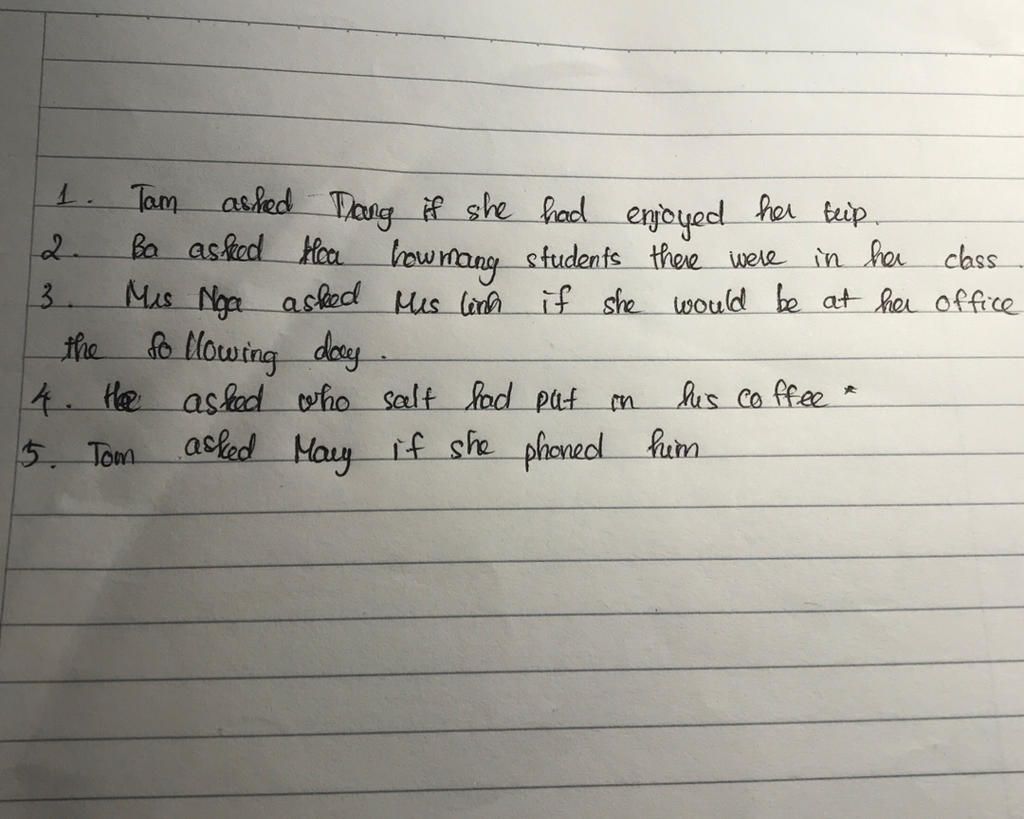 1. Tam asked Dang if she had enjoyed her trip.
2. Ba asked Hoa howmany students there were in her class.
3. Mrs Nga asked Mrs Linh if she would be at her office
the following day.
4. He asked who salt had put in his coffee *
5. Tom asked Mary if she phoned him